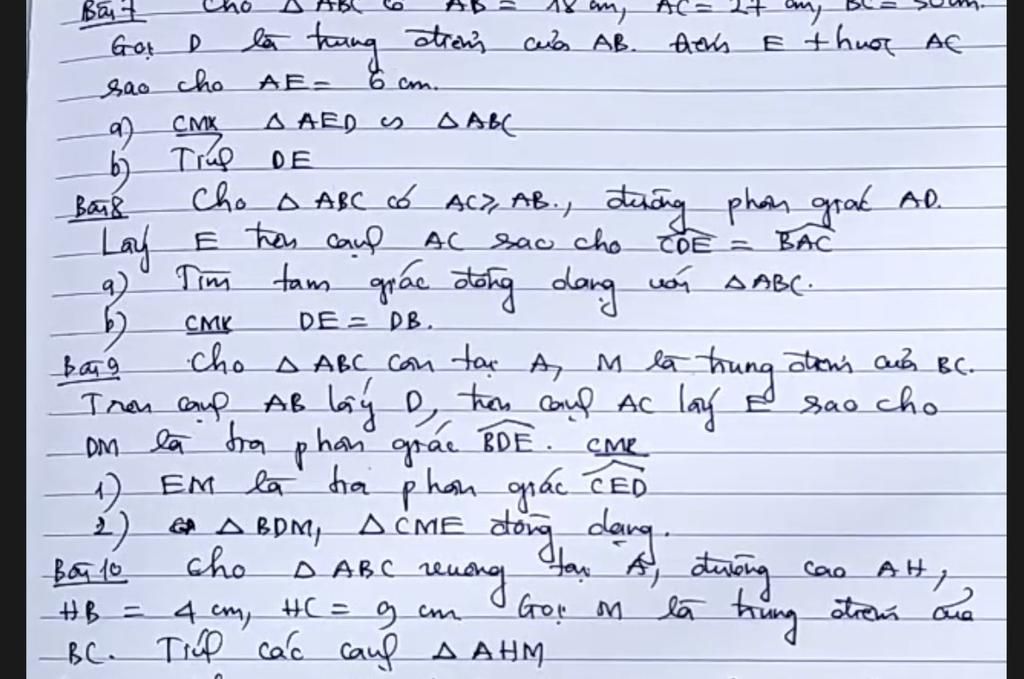 Bài 7 Cho △ ABC có AB = 18 cm, AC = 27 cm, BC = 30 cm.
Gọi D là trung điểm của AB. Điểm E thuộc AC
sao cho AE = 6 cm.
a) CMR △ AED ∽ △ ABC
b) Tính DE
Bài 8 Cho △ ABC có AC > AB., đường phân giác AD.
Lấy E trên cạnh AC sao cho \widehat{CDE} = \widehat{BAC}
a) Tìm tam giác đồng dạng với △ ABC.
b) CMR DE = DB.
Bài 9 Cho △ ABC cân tại A, M là trung điểm của BC.
Trên cạnh AB lấy D, trên cạnh AC lấy E sao cho
DM là tia phân giác \widehat{BDE}. CMR
1) EM là tia phân giác \widehat{CED}
2) △ BDM, △ CME đồng dạng.
Bài 10 Cho △ ABC vuông tại A, đường cao AH,
HB = 4 cm, HC = 9 cm Gọi M là trung điểm của
BC. Tính các cạnh △ AHM